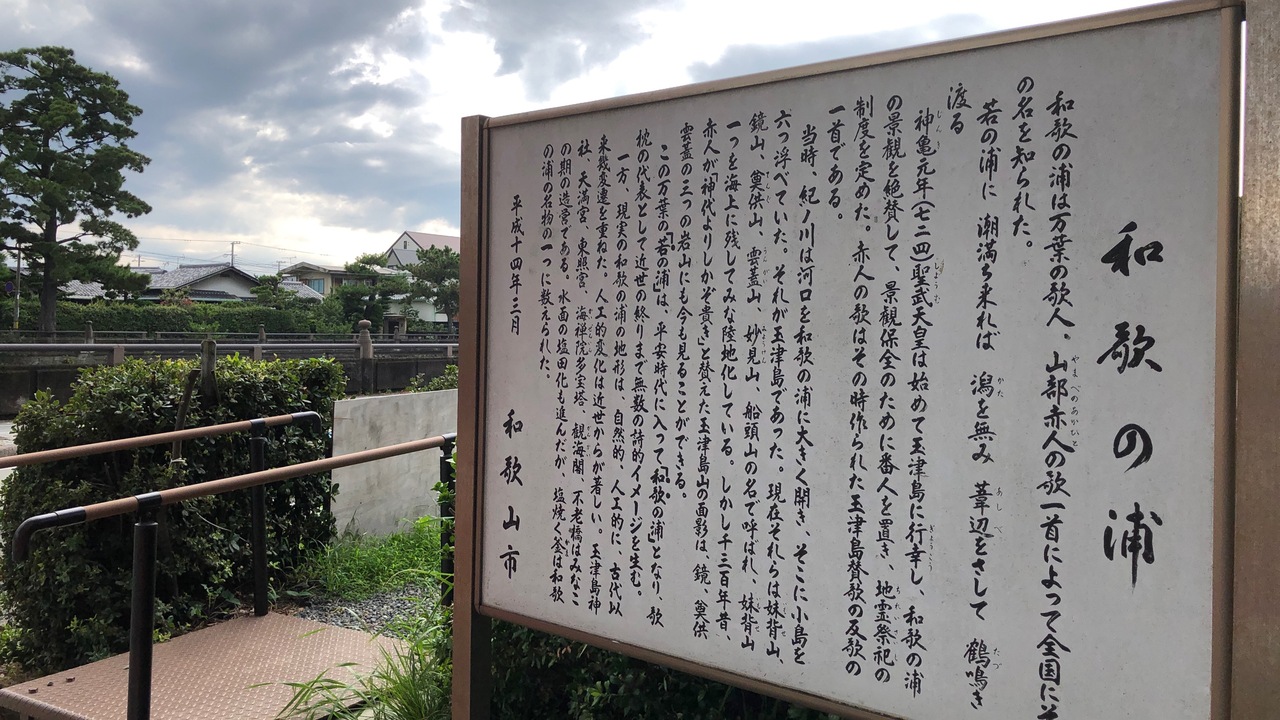 和歌の浦
和歌の浦は万葉の歌人。山部赤人の歌一首によって全国にそ
の名を知られた。
若の浦に 潮満ち来れば 潟を無み 葦辺をさして 鶴鳴き
渡る
神亀元年(七二四)聖武天皇は始めて玉津島に行幸し、和歌の浦
の景観を絶賛して、景観保全のために番人を置き、地霊祭祀の
制度を定めた。赤人の歌はその時作られた玉津島賛歌の反歌の
一首である。
当時、紀ノ川は河口を和歌の浦に大きく開き、そこに小島を
六つ浮べていた。それが玉津島であった。現在それらは妹背山、
鏡山、奠供山、雲蓋山、妙見山、船頭山の名で呼ばれ、妹背山
一つを海上に残してみな陸地化している。しかし千三百年昔、
赤人が「神代よりしかぞ貴き」と替えた玉津島山の面影は、鏡、奠供
雲蓋の三つの岩山にも今も見ることができる。
この万葉の「若の浦」は、平安時代に入って「和歌の浦」となり、歌
枕の代表として近世の終りまで無数の詩的イメージを生む。
一方、現実の和歌の浦の地形は、自然的、人工的に、古代以
来幾変遷を重ねた。人工的変化は近世からが著しい。玉津島神
社、天満宮、東照宮、海禅院多宝塔、観海閣、不老橋はみなこ
の期の造営である。水面の塩田化も進んだが、塩焼く釜は和歌
の浦の名物の一つに数えられた。
平成十四年三月 和歌山市